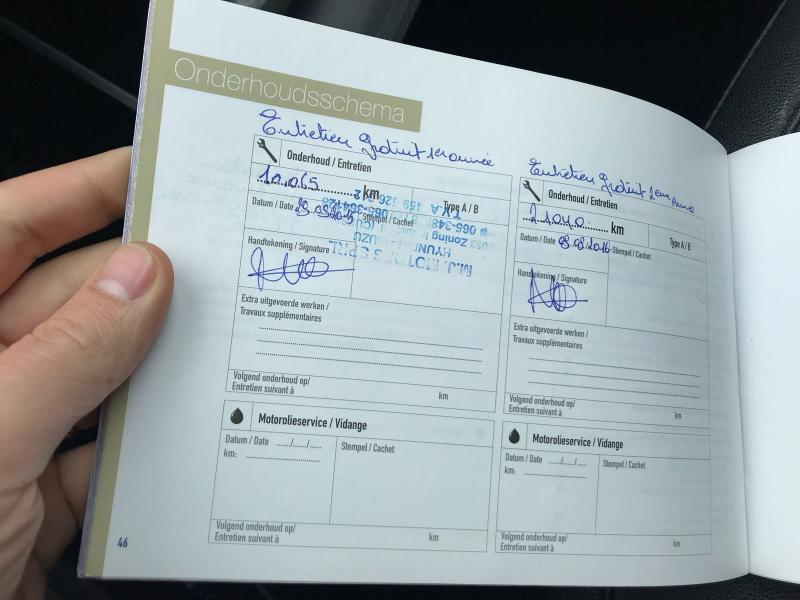 Onderhoudsschema
Entretien gratuit 1er année
Onderhoud / Entretien
10.065 km
Type A / B
Datum / Date
Stempel / Cachet
M.J. MOTORS SPRL
Handtekening / Signature
Extra uitgevoerde werken /
Travaux supplémentaires
Volgend onderhoud op/
Entretien suivant à
km
Motorolieservice / Vidange
Datum / Date ...../...../.....
Stempel / Cachet
km:
Volgend onderhoud op/
Entretien suivant à
km
Entretien gratuit 2ème
Onderhoud / Entretien
21040 km
Type A / B
Datum / Date
Stempel / Cachet
Handtekening / Signature
Extra uitgevoerde werken /
Travaux supplémentaires
Volgend onderhoud op/
Entretien suivant à
km
Motorolieservice / Vidange
Datum / Date ...../...../.....
Stempel / Cachet
km:
Volgend onderhoud op/
Entretien suivant à
km
46